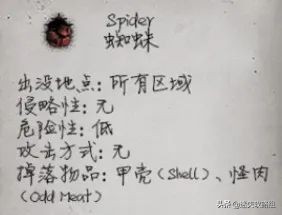 Spider
蜘蛛
出没地点：所有区域
侵略性：无
危险性：低
攻击方式：无
掉落物品：甲壳（Shell）、怪肉
（Odd Meat）
头条 @迷失攻略组